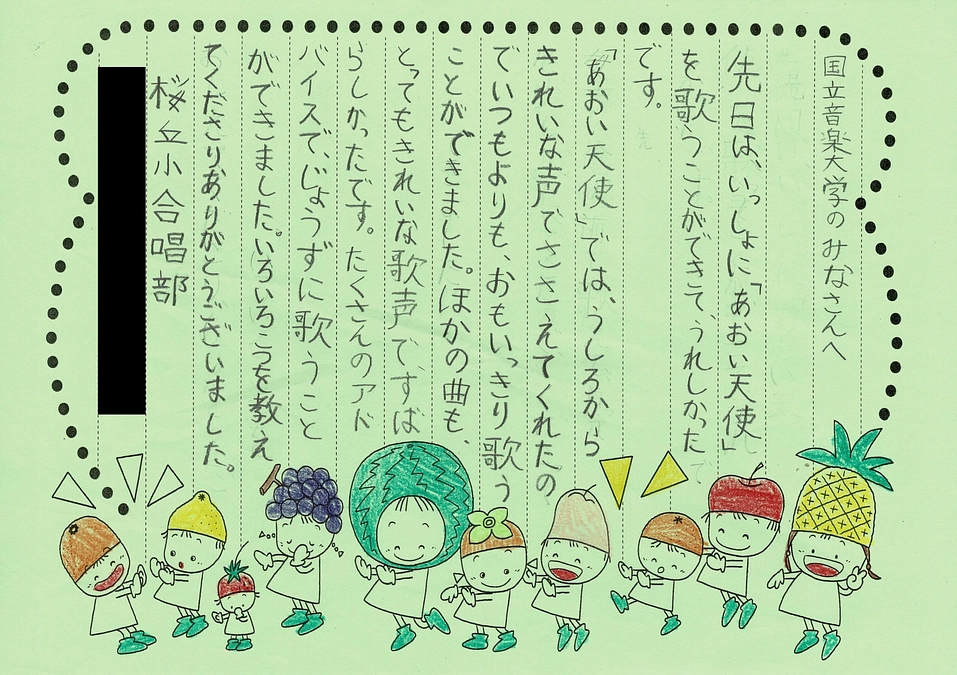 国立音楽大学のみなさんへ
先日は、いっしょに「あおい天使」
を歌うことができて、うれしかった
です。
「あおい天使」では、うしろから
きれいな声でささえてくれたの
でいつもよりも、おもいっきり歌う
ことができました。ほかの曲も、
とってもきれいな歌声ですば
らしかったです。たくさんのアド
バイスで、じょうずに歌うこと
ができました。いろいろこつを教え
てくださりありがとうございました。
桜丘小合唱部